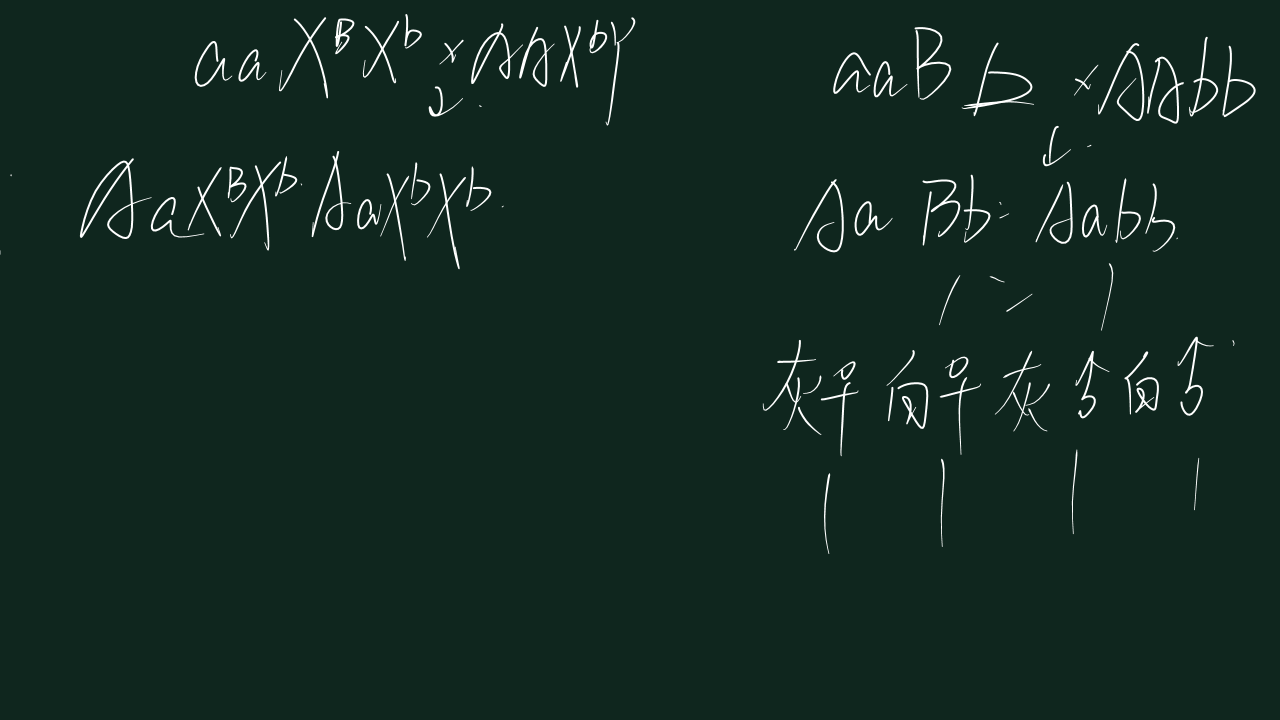 aaXᴮXᵇ × AAXᵇY
↓
AaXᴮXᵇ AaXᵇXᵇ
aaBb × AAbb
↓
AaBb : Aabb
1 : 1
灰♀ 白♀ 灰♂ 白♂
1 1 1 1